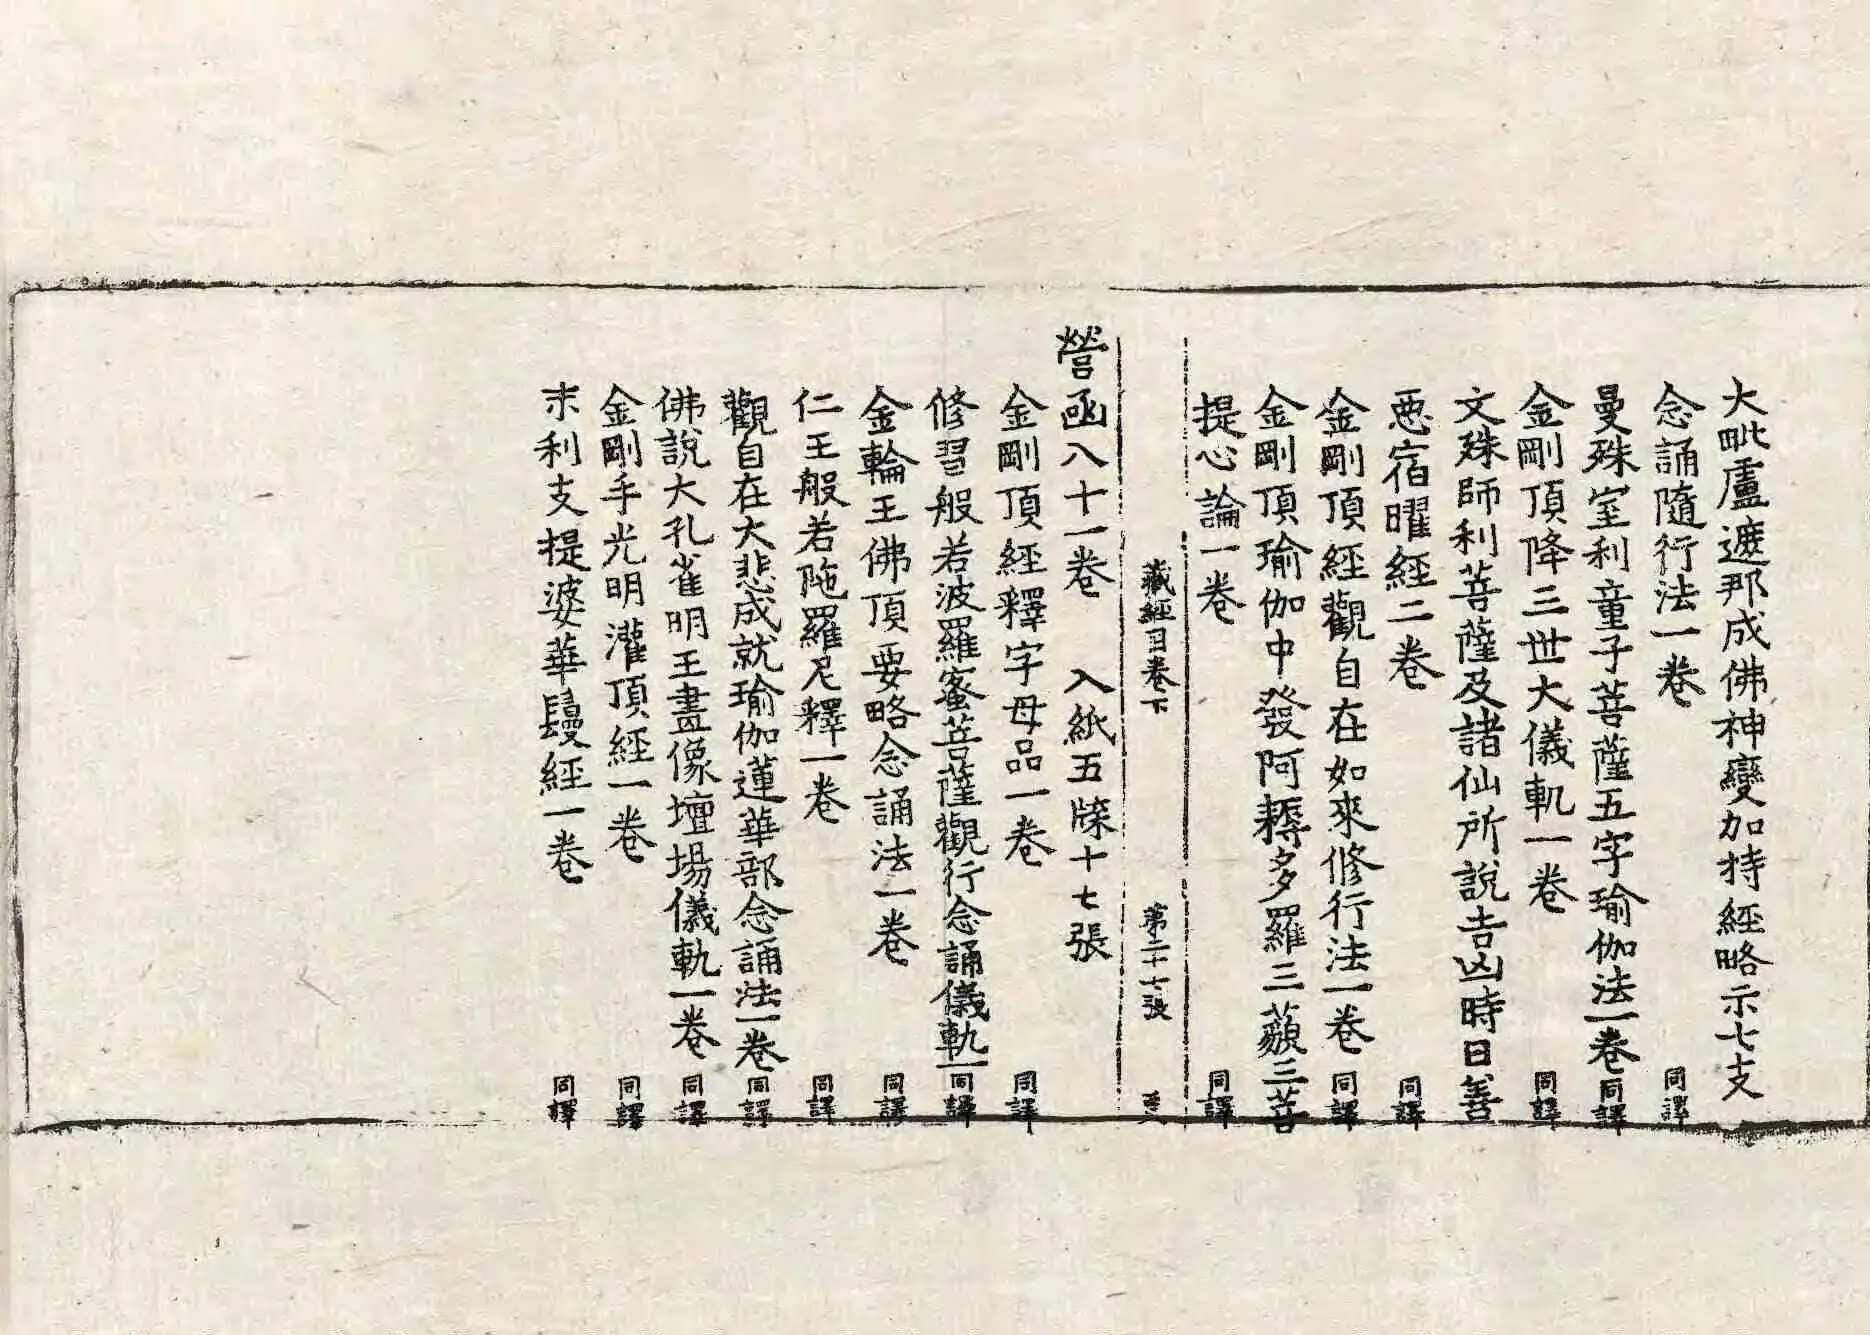 大毗盧遮那成佛神變加持經略示七支
念誦隨行法一卷 同譯
曼殊室利童子菩薩五字瑜伽法一卷 同譯
金剛頂降三世大儀軌一卷 同譯
文殊師利菩薩及諸仙所說吉凶時日善
惡宿曜經二卷 同譯
金剛頂經觀自在如來修行法一卷 同譯
金剛頂瑜伽中發阿耨多羅三藐三菩
提心論一卷 同譯
藏經目卷下 第二十七張
營函八十一卷 入紙五牒十七張
金剛頂經釋字母品一卷 同譯
修習般若波羅蜜菩薩觀行念誦儀軌一 同譯
金輪王佛頂要略念誦法一卷 同譯
仁王般若陁羅尼釋一卷 同譯
觀自在大悲成就瑜伽蓮華部念誦法一卷 同譯
佛說大孔雀明王畫像壇場儀軌一卷 同譯
金剛手光明灌頂經一卷 同譯
末利支提婆華鬘經一卷 同譯